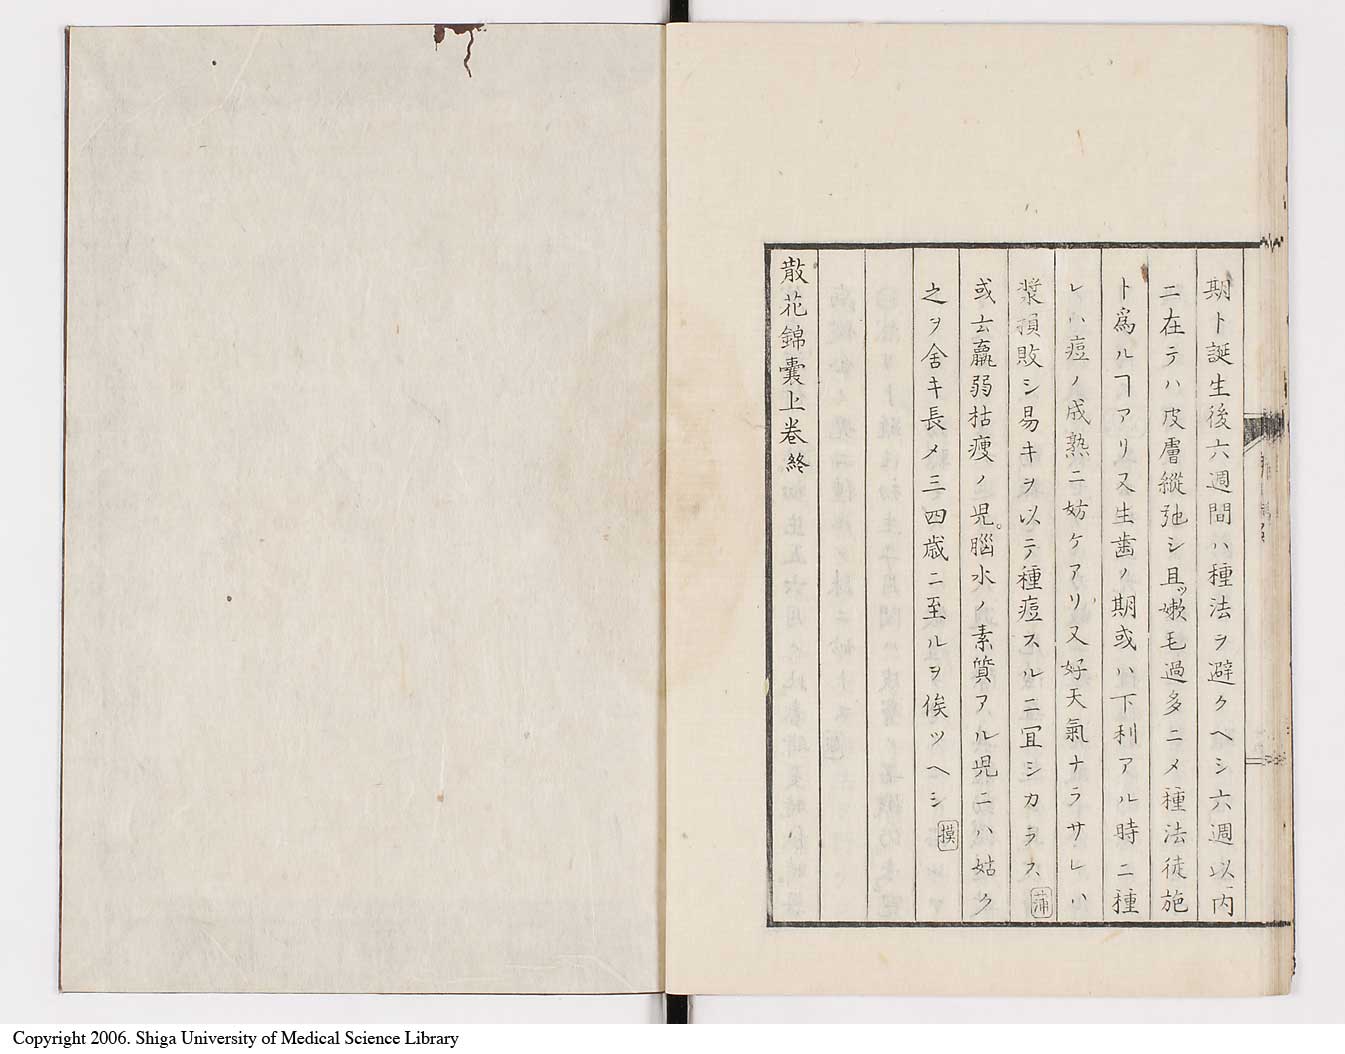 期ト誕生後六週間ハ種法ヲ避クヘシ六週以内
ニ在テハ皮膚縱弛シ且ツ嫩毛過多ニメ種法徒施
ト爲ルヿアリ又生歯ノ期或ハ下利アル時ニ種
レハ痘ノ成熟ニ妨ケアリ又好天氣ナラサレハ
漿損敗シ易キヲ以テ種痘スルニ冝シカラス 蒲
或云羸弱枯痩ノ児。腦水ノ素質アル児ニハ姑ク
之ヲ舍キ長メ三四歳ニ至ルヲ俟ツヘシ 摸
散花錦嚢上巻終
Copyright 2006. Shiga University of Medical Science Library